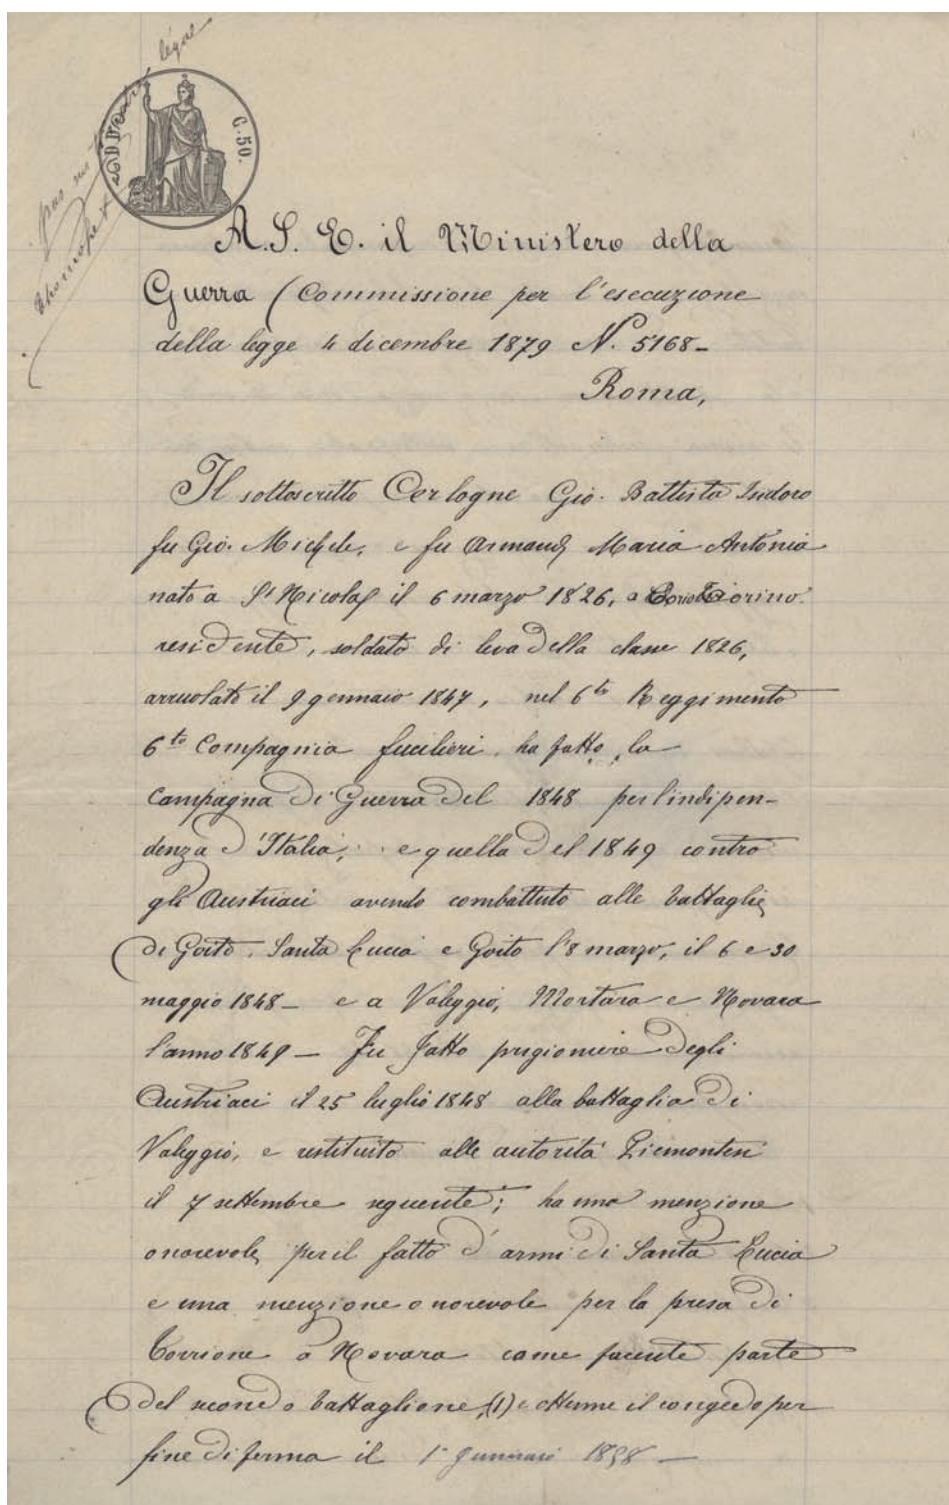 C. 50.
A. S. E. il Ministero della
Guerra (Commissione per l'esecuzione
della legge 4 dicembre 1879 N. 5168 -
Roma,
Il sottoscritto Cerlogne Gio. Battista Isidoro
fu Gio. Michele, e fu Armand Maria Antonia
nato a St Nicolas il 6 marzo 1826, a Torino
residente, soldato di leva della classe 1826,
arruolato il 9 gennaio 1847, nel 6to Reggimento
6to Compagnia fucilieri, ha fatto la
Campagna di Guerra del 1848 per l'indipen-
denza d'Italia, e quella del 1849 contro
gli Austriaci avendo combattuto alle battaglie
di Goito, Santa Lucia e Goito l'8 marzo, il 6 e 30
maggio 1848 - e a Valeggio, Mortara e Novara
l'anno 1849 - Fu fatto prigioniere degli
Austriaci il 25 luglio 1848 alla battaglia di
Valeggio, e restituito alle autorità Piemontesi
il 7 settembre seguente; ha una menzione
onorevole per il fatto d'armi di Santa Lucia
e una menzione onorevole per la presa di
Torrione a Novara come facente parte
del secondo battaglione, (1) e ottenne il congedo per
fine di ferma il 1° Gennaio 1858 -